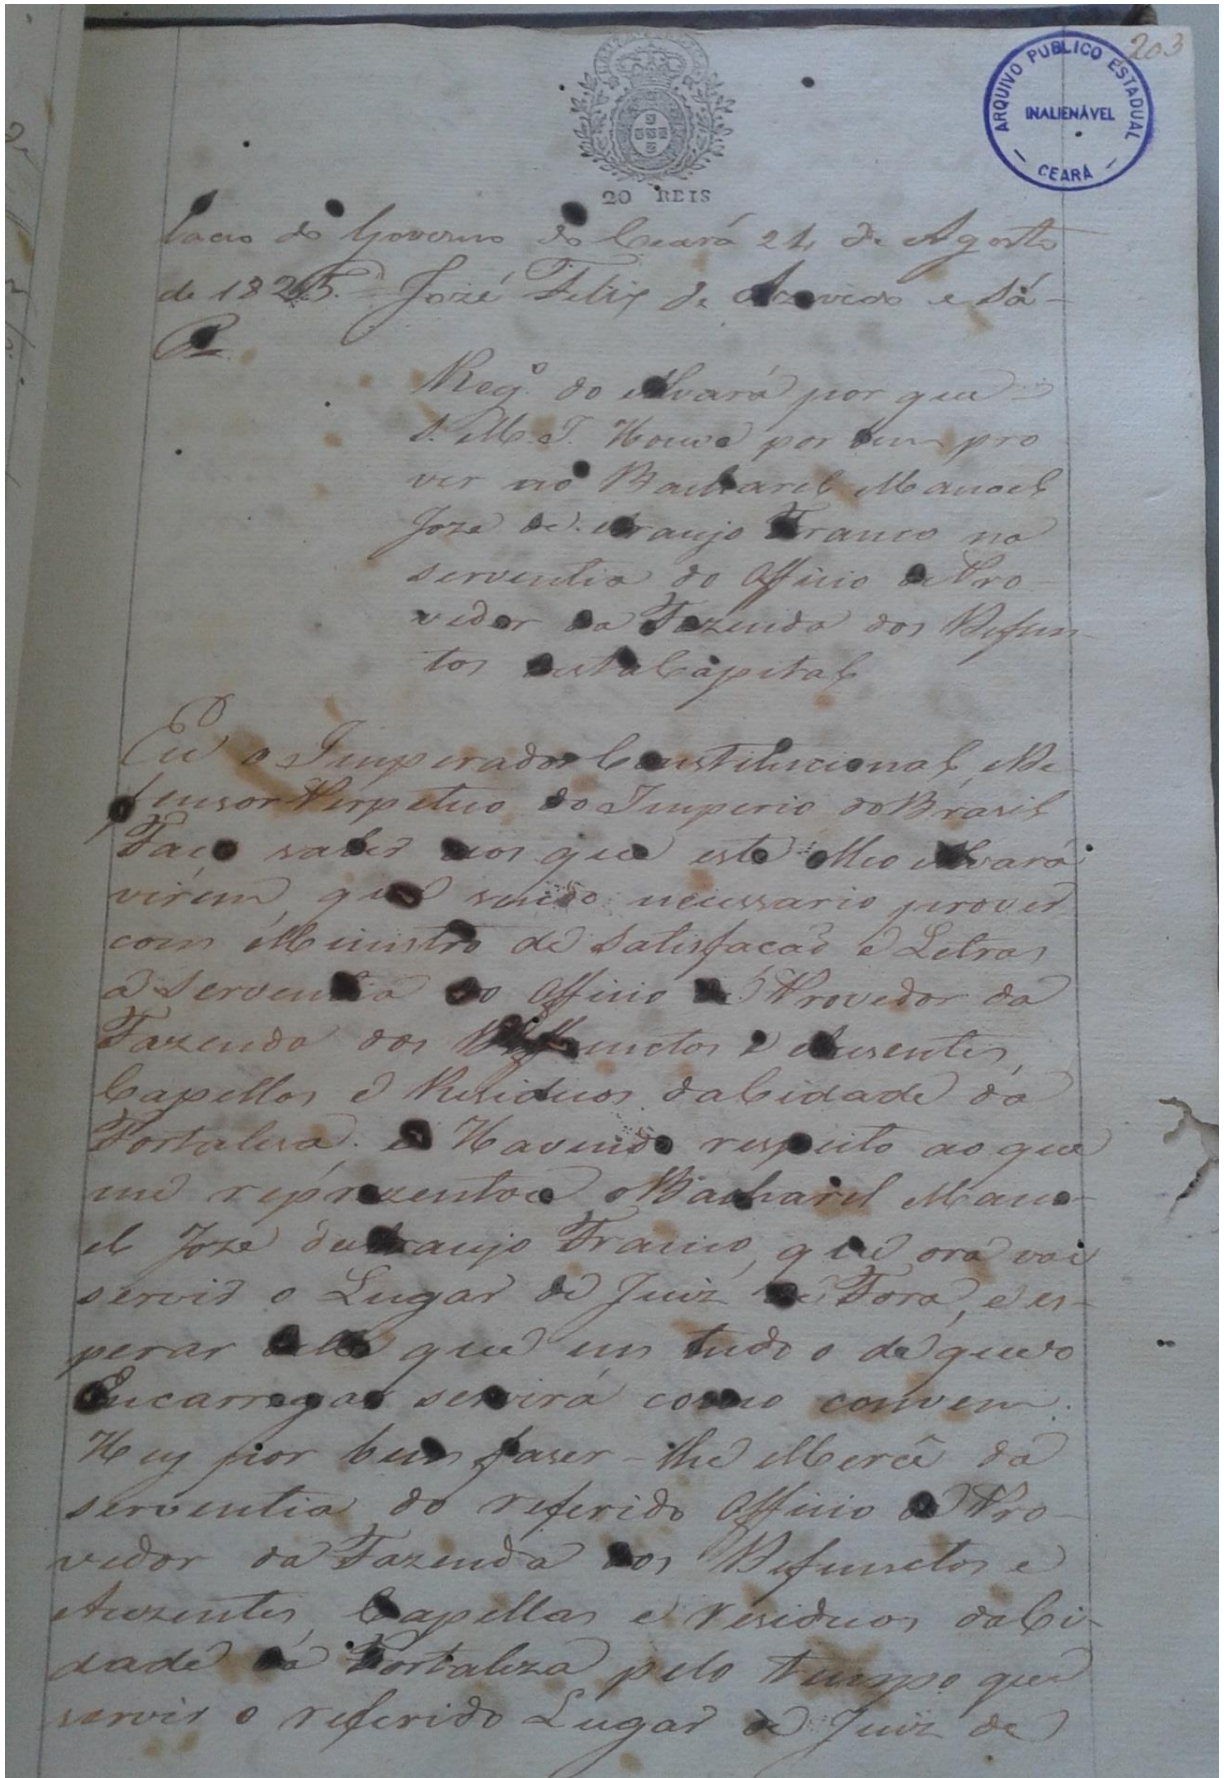 203
ARQUIVO PUBLICO ESTADUAL
INALIENÁVEL
— CEARÁ —
20 REIS
lacio do Governo do Ceará 24 de Agosto
de 1825. José Felix de Azevedo e Sá -
Reg.º do Alvará por que
S. M. I. Houve por bem pro
ver no Bacharel Manoel
Joze de Araujo Franco na
serventia do Officio de Pro
vedor da Fazenda dos Defun-
tos desta Capital
Eu o Imperador Constitucional, De-
fensor Perpetuo do Imperio do Brasil
Faço saber aos que este Meo Alvará
virem, que sendo necessario prover
com Ministro de Satisfacaõ e Letras
a Serventia do Officio de Provedor da
Fazenda dos Defunctos e Ausentes,
Capellas e Residuos da Cidade da
Fortalesa. e Havendo respeito ao que
me reprezentou o Bacharel Mano-
el Joze de Araujo Franco, que ora vai
servir o Lugar de Juiz de Fora, e es-
perar delle que em tudo o de que o
Encarregar servirá como convem.
Hey por bem faser-lhe Mercê da
serventia do referido Officio de Pro-
vedor da Fazenda dos Defunctos e
Auzentes, Capellas e Residuos da Ci-
dade da Fortaleza pelo tempo que
servir o referido Lugar de Juiz de